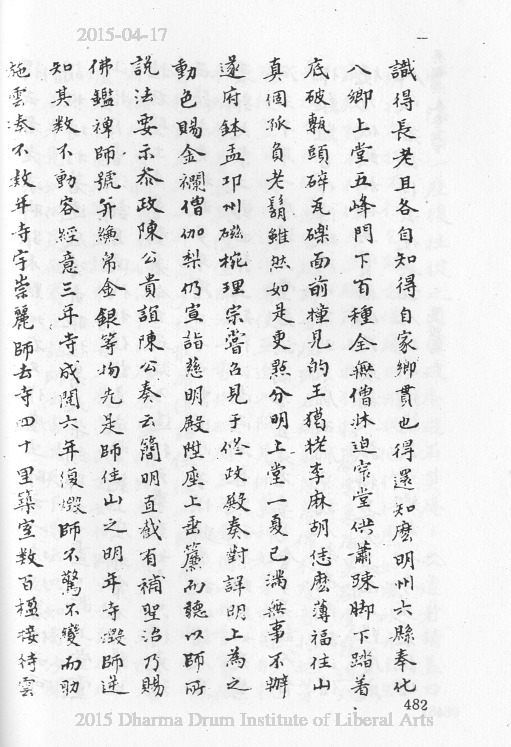 2015-04-17
識得長老且各自知得自家鄉貫也得還知麼明州六縣奉化
八鄉上堂五峰門下百種全無僧牀迫窄堂供蕭踈脚下踏着
底破甎頭碎瓦礫面前撞見的王獦狫李麻胡恁麼薄福住山
真個孤負老鬍雖然如是更點分明上堂一夏已滿無事不辦
遂府鉢盂邛州磁椀理宗嘗召見于修政殿奏對詳明上為之
動色賜金襴僧伽梨仍宣詣慈明殿陞座上垂簾而聽以師所
說法要示叅政陳公貴誼陳公奏云簡明直截有補聖治乃賜
佛鑑禅師號并縑帛金銀等物先是師住山之明年寺燬師進
知其数不動容經意三年寺成閱六年復燬師不驚不變而助
施雲凑不数年寺宇崇麗師去寺四十里築室数百楹接待雲
482
2015 Dharma Drum Institute of Liberal Arts